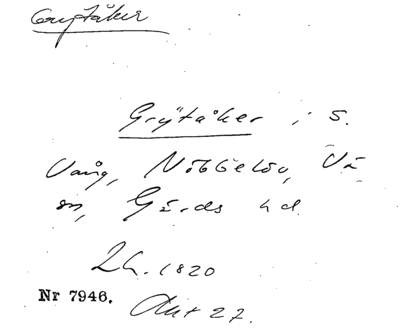 Grytåker
Grytåker i S.
Vång, Nöbbelöv, Vä
sn, Gärds hd.
Lh. 1820
Nr 7946. Akt 27.